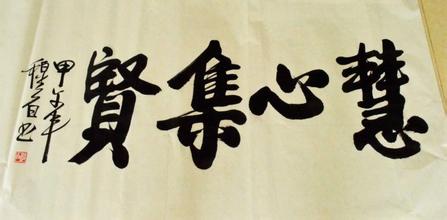 慧心集賢
甲午年
書